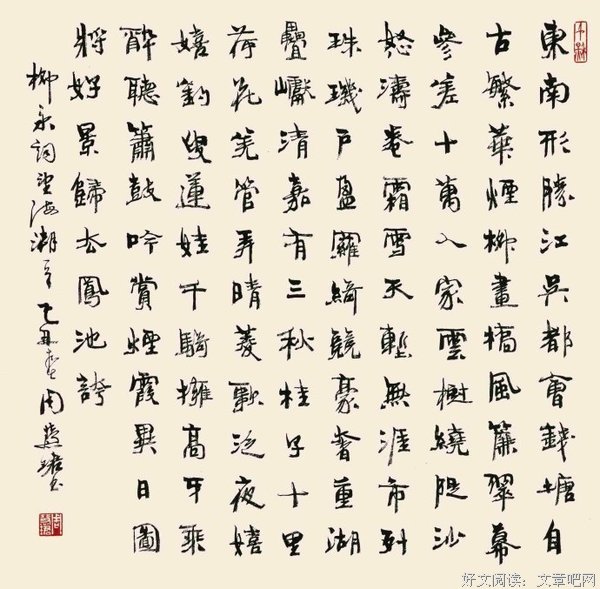 東南形勝江吳都會錢塘自
古繁華煙柳畫橋風簾翠幕
參差十萬人家雲樹繞隄沙
怒濤卷霜雪天塹無涯市列
珠璣戶盈羅綺競豪奢重湖
疊巘清嘉有三秋桂子十里
荷花羌管弄晴菱歌泛夜嬉
嬉釣叟蓮娃千騎擁高牙乘
醉聽簫鼓吟賞煙霞異日圖
將好景歸去鳳池誇
柳永詞望海潮 乙丑春周慧珺書
好文阅读：文章吧网